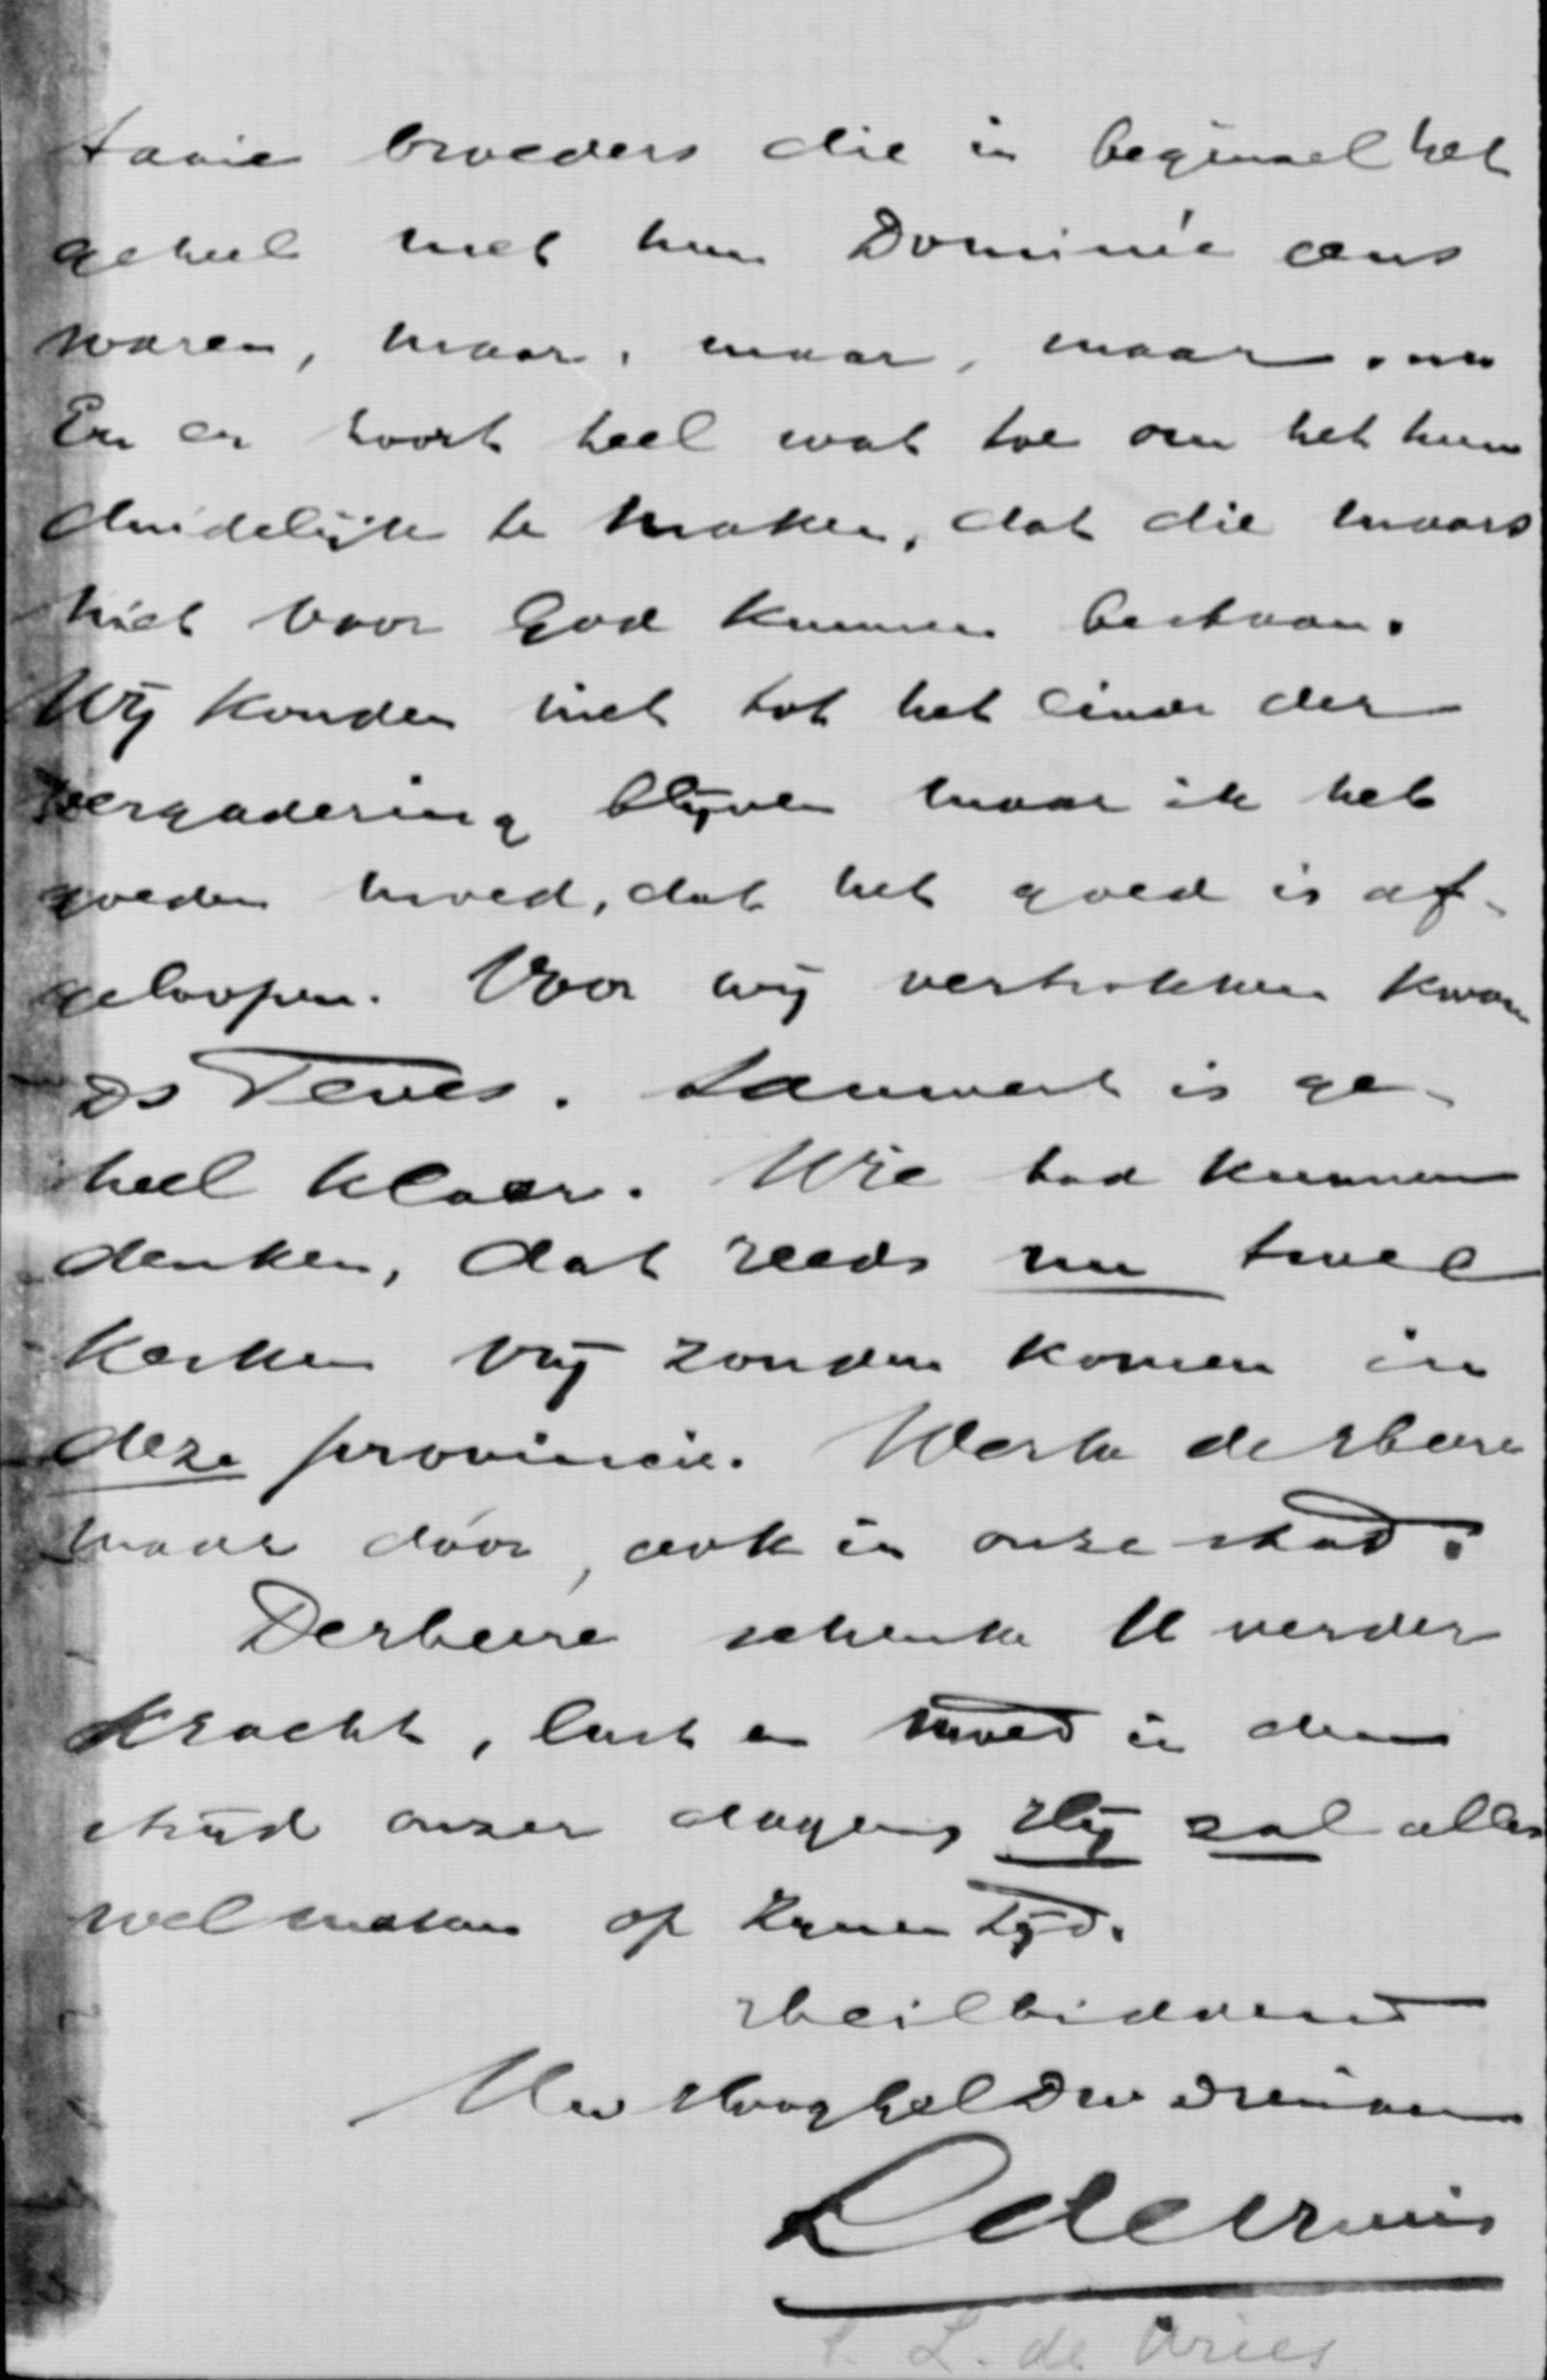 taaie broeders die in beginsel het
geheel met hun Dominée eens
waren, maar, maar, maar...
En er hoort heel wat toe om het hun
duidelijk te maken, dat die maars
niet voor God kunnen bestaan.
Wij konden niet tot het einde der
vergadering blijven maar ik heb
goeden moed, dat het goed is af-
geloopen. Voor wij vertrokken kwam
Ds Teves. is ge-
heel klaar. Wie had kunnen
denken, dat reeds nu twee
kerken vrij zouden komen in
deze provincie. Werke de Heere
maar dóór, ook in onze stad.
De Heere schenke U verder
kracht, lust en moed in den
strijd onzer dagen, Hij zal alles
wel maken op Zijnen tijd.
Heilbiddend
Uw Hooggel Dw Dienaar
L de Vries
L. de Vries